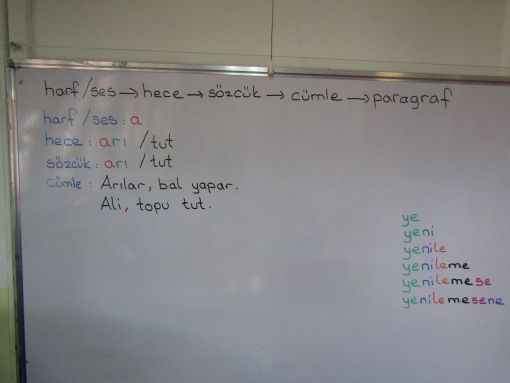 harf/ses → hece → sözcük → cümle → paragraf
harf/ses: a
hece: arı /tut
sözcük: arı /tut
cümle: Arılar, bal yapar.
Ali, topu tut.
ye
yeni
yenile
yenileme
yenilemese
yenilemesene